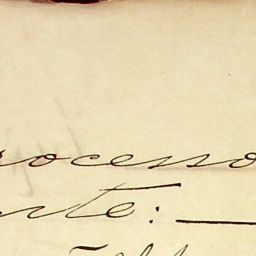 rocesso
nte: —